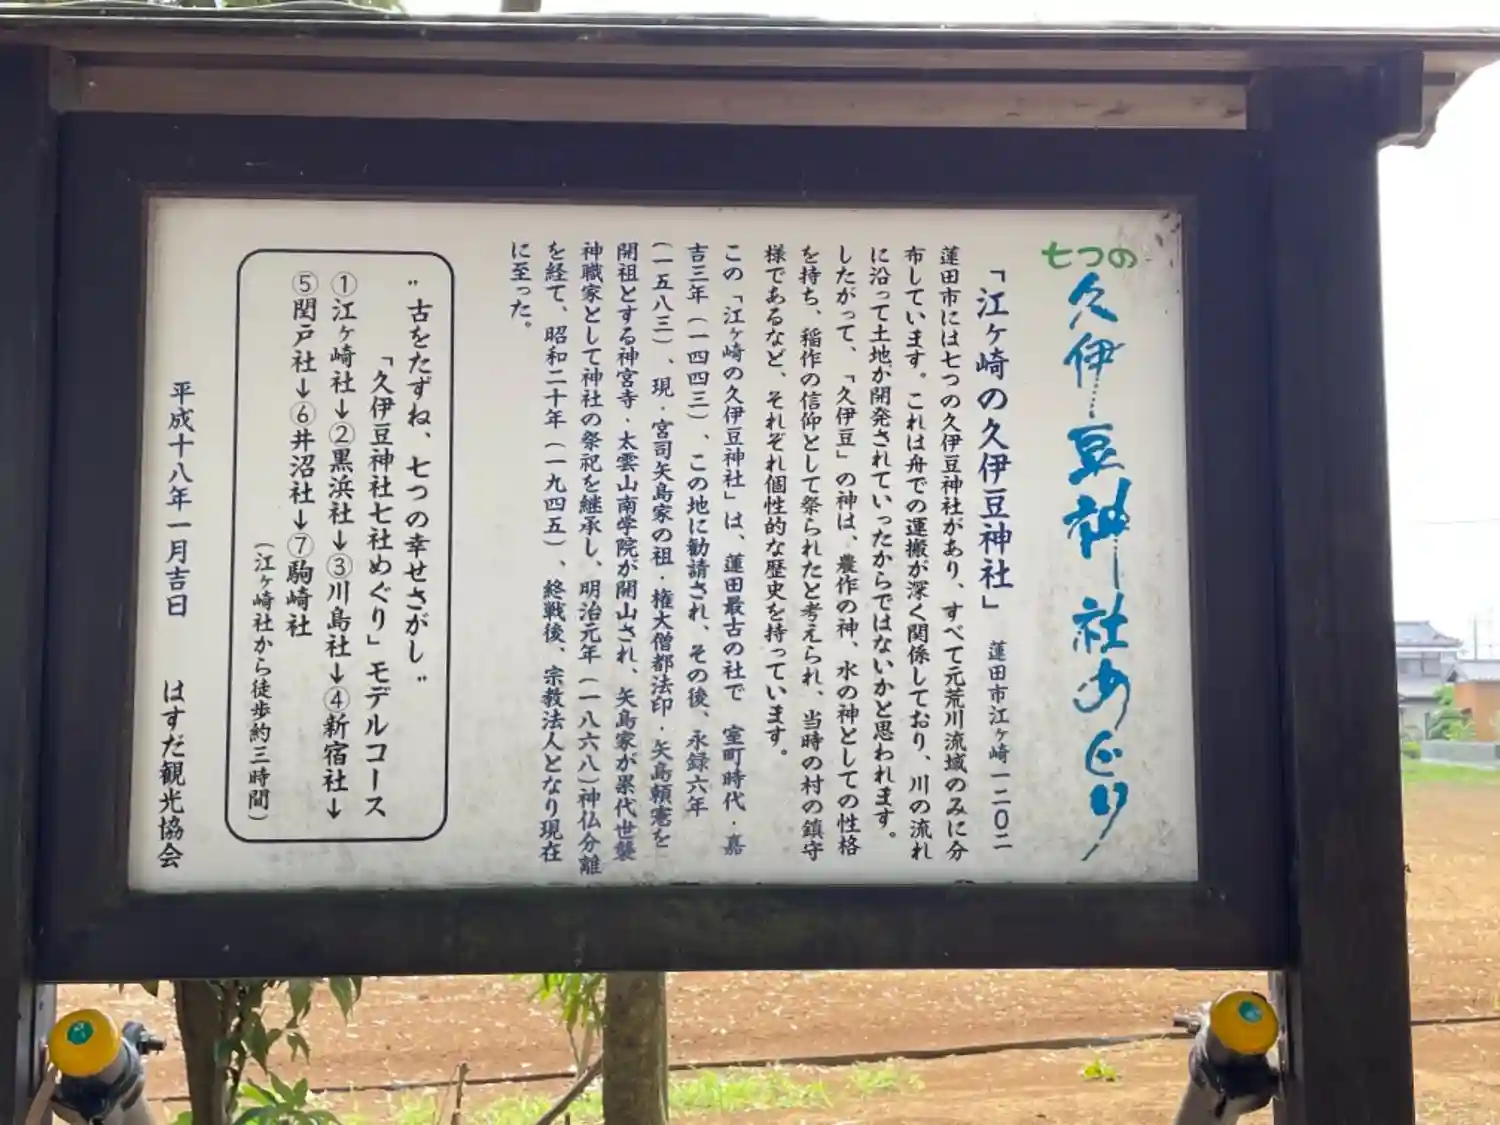 七つの
久伊豆神社めぐり
「江ヶ崎の久伊豆神社」 蓮田市江ヶ崎一二〇二
蓮田市には七つの久伊豆神社があり、すべて元荒川流域のみに分
布しています。これは舟での運搬が深く関係しており、川の流れ
に沿って土地が開発されていったからではないかと思われます。
したがって、「久伊豆」の神は、農作の神、水の神としての性格
を持ち、稲作の信仰として祭られたと考えられ、当時の村の鎮守
様であるなど、それぞれ個性的な歴史を持っています。
この「江ヶ崎の久伊豆神社」は、蓮田最古の社で 室町時代・嘉
吉三年(一四四三)、この地に勧請され、その後、永録六年
(一五八三)、現・宮司矢島家の祖・権大僧都法印・矢島頼憲を
開祖とする神宮寺・太雲山南学院が開山され、矢島家が累代世襲
神職家として神社の祭祀を継承し、明治元年(一八六八)神仏分離
を経て、昭和二十年(一九四五)、終戦後、宗教法人となり現在
に至った。
"古をたずね、七つの幸せさがし"
「久伊豆神社七社めぐり」モデルコース
①江ヶ崎社→②黒浜社→③川島社→④新宿社→
⑤閏戸社→⑥井沼社→⑦駒崎社
(江ヶ崎社から徒歩約三時間)
平成十八年一月吉日 はすだ観光協会